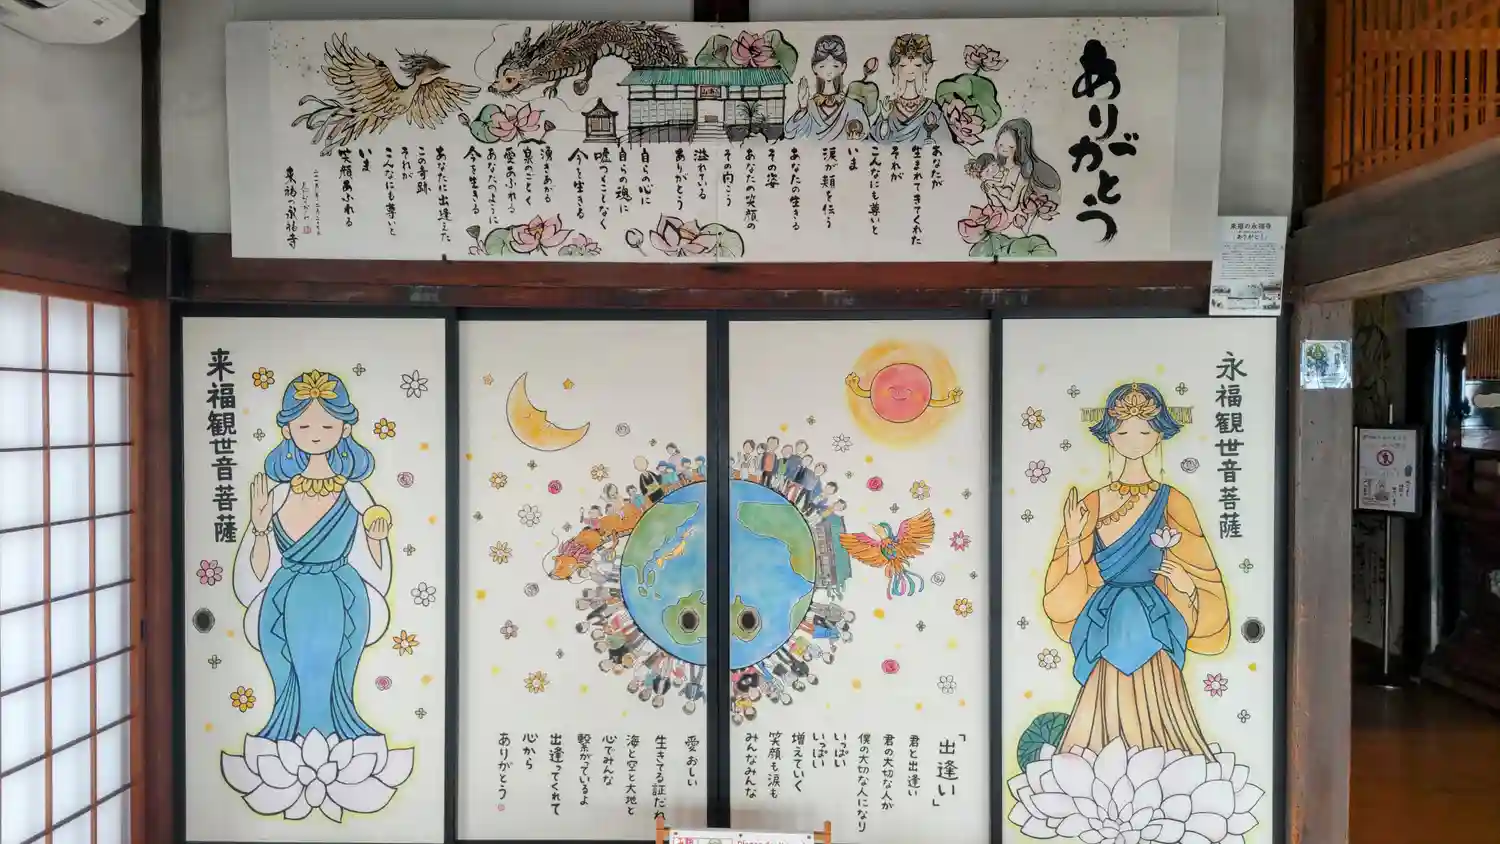 ありがとう
あなたが
生まれてきてくれた
それが
こんなにも尊いと
いま
涙が頬を伝う
あなたの生きる
その姿
あなたの笑顔の
その向こう
溢れている
ありがとう
自らの心に
自らの魂に
嘘つくことなく
今を生きる
湧きあがる
泉のごとく
愛あふれる
あなたのように
今を生きる
あなたに出逢えた
この奇跡
それが
こんなにも尊いと
いま
笑顔あふれる
来福の永福寺
来福の永福寺
「ありがとう」
永福観世音菩薩
「出逢い」
君と出逢い
君の大切な人が
僕の大切な人になり
いっぱい
いっぱい
増えていく
笑顔も涙も
みんなみんな
愛おしい
生きてる証だね
海と空と大地と
心でみんな
繋がっているよ
出逢ってくれて
心から
ありがとう
来福観世音菩薩